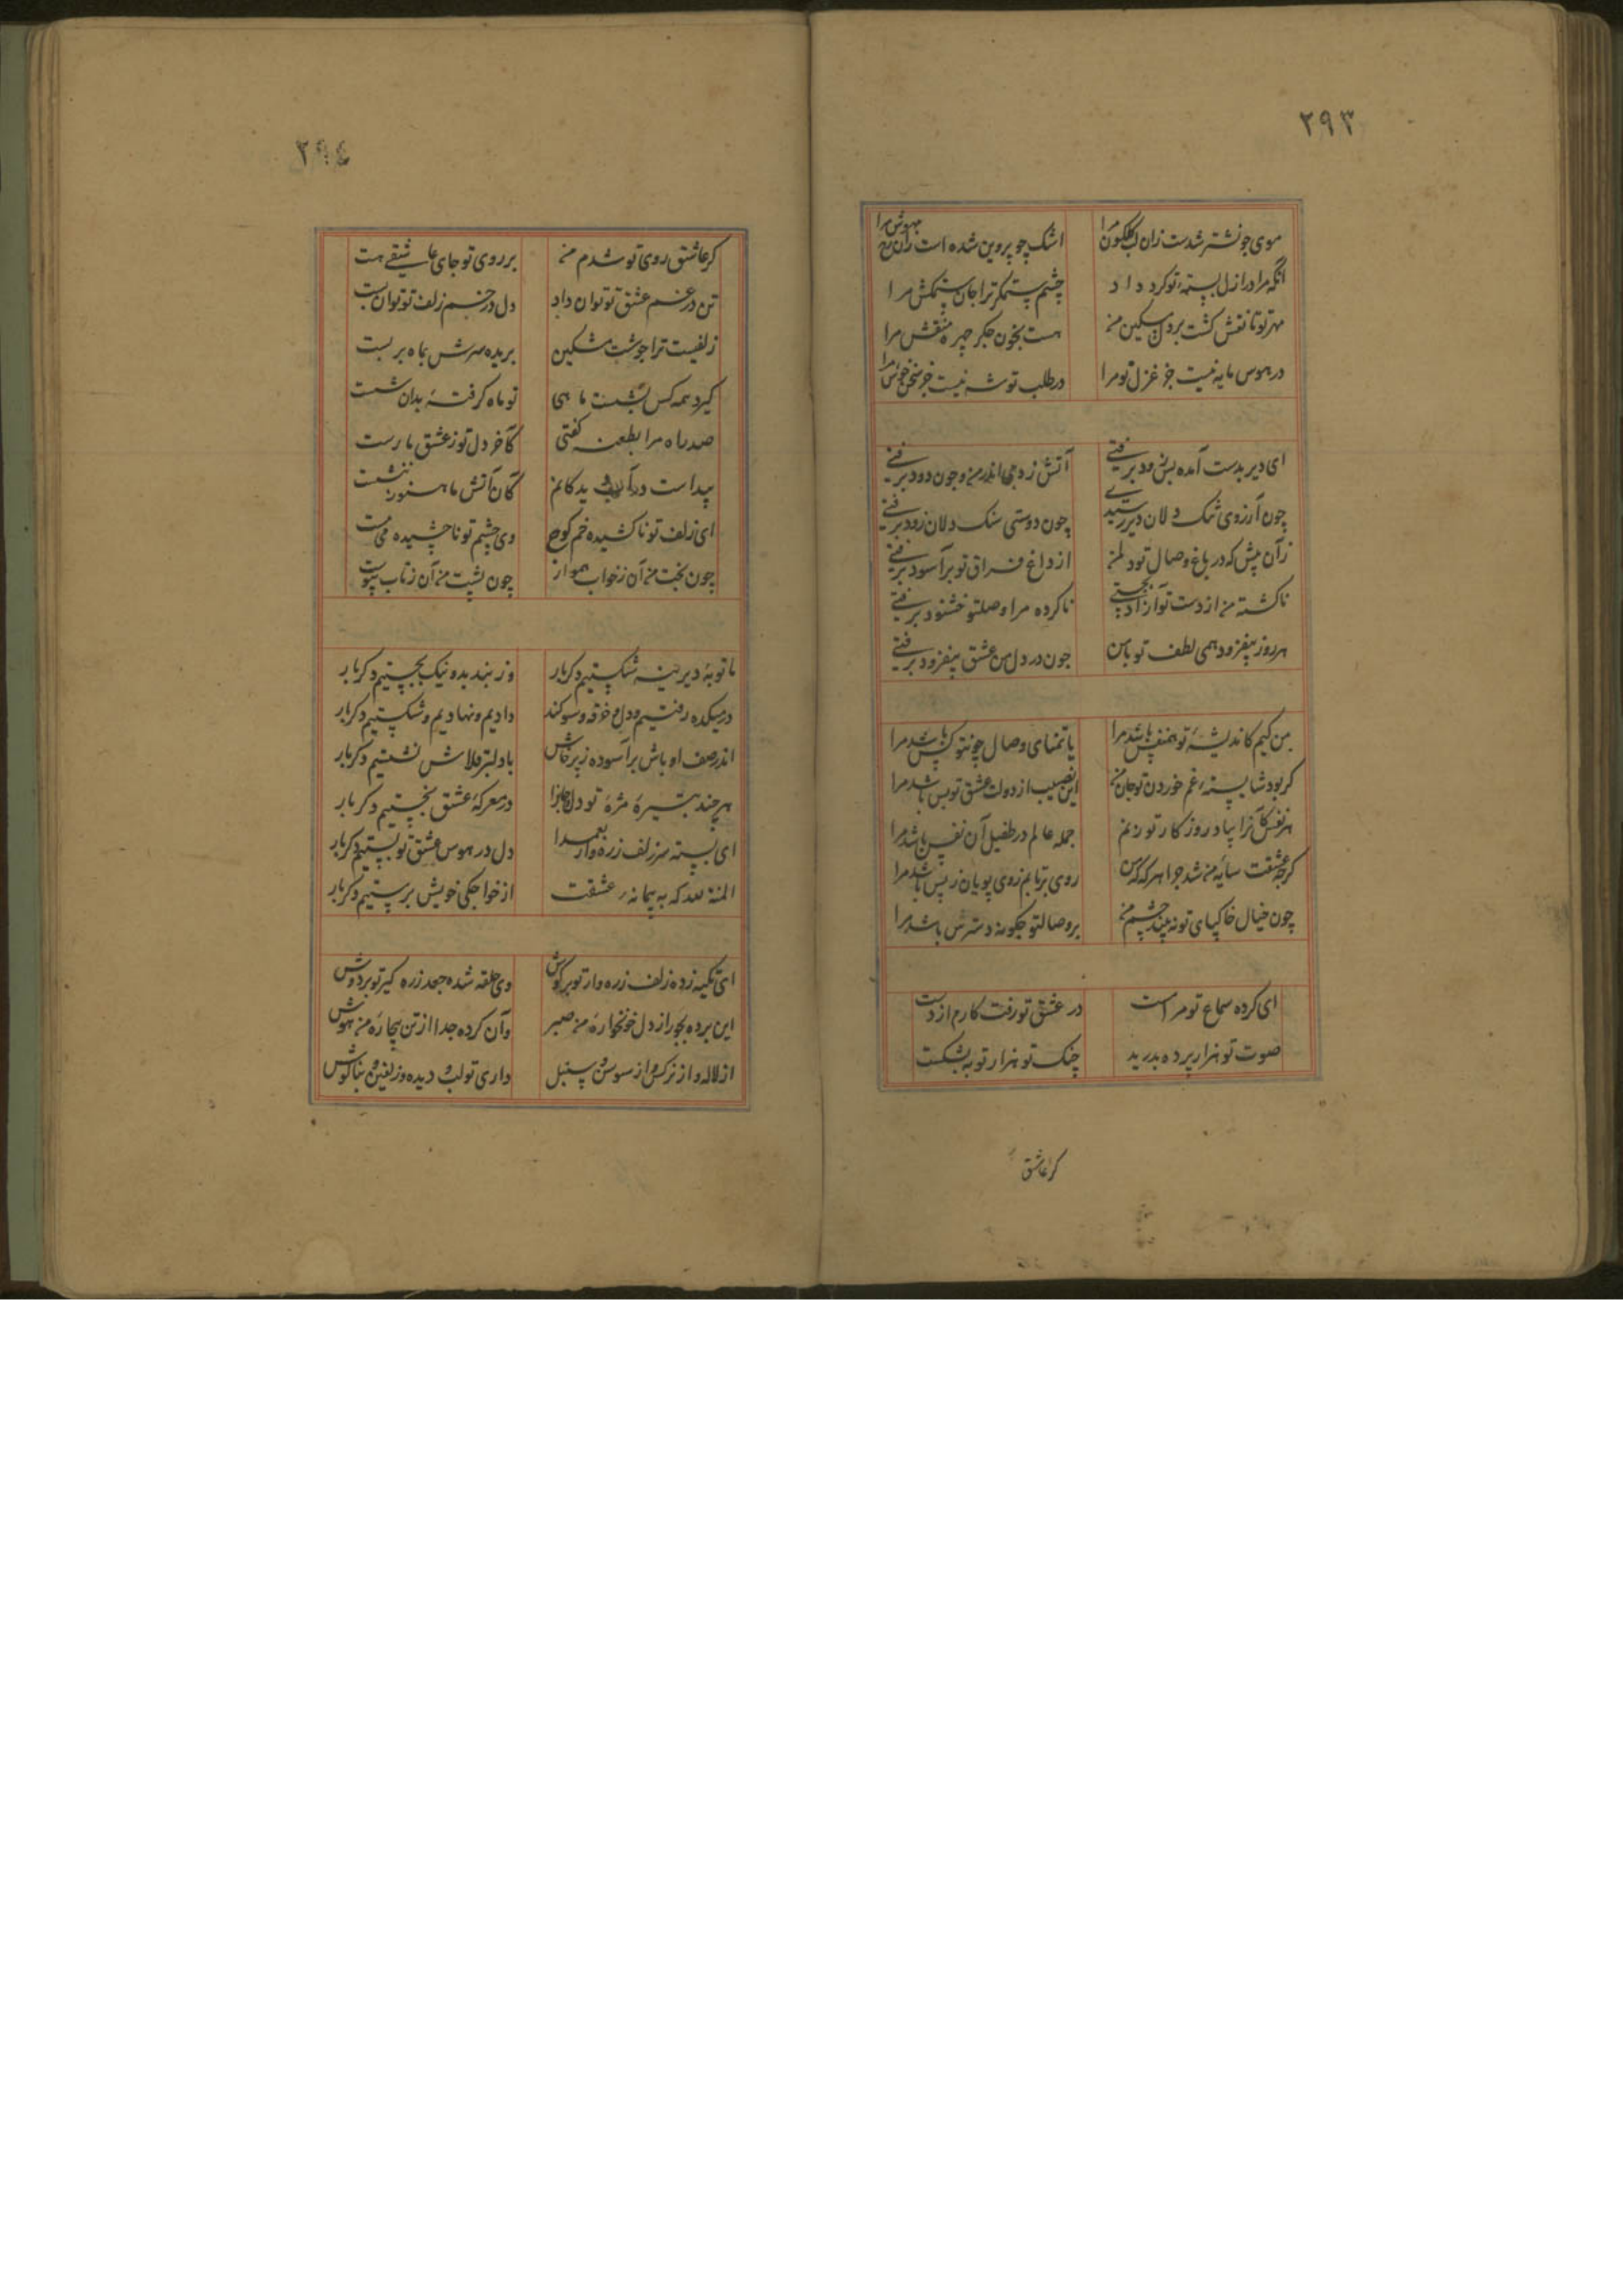 ۲۹۳
موی چو نشتر شدست زان لب گلگون مرا اشک چو پروین شده است زان رخ مهوش مرا
آنکه مرا در ازل بسته تو کرد و داد چشم ستمکر ترا جان ستمکش مرا
مهر تو تا نقش کشت بر دل مسکین من هست بخون جکر چهره منقش مرا
در هوس مایه نیست جز غزل تو مرا در طلب توشه نیست جز سخن خوش مرا
ای دیر بدست آمده بس زود برفتی آتش زدی اندر من و چون دود برفتی
چون آرزوی تنک دلان دیر رسیدی چون دوستی سنک دلان زود برفتی
زان پیش که در باغ وصال تو دل من از داغ فراق تو برآسود برفتی
ناکشته من از دست تو آزاد بجستی ناکرده مرا وصلتو خشنود برفتی
هر روز بیفزود همی لطف تو با من چون در دل من عشق بیفزود برفتی
من کیم کاندیشه تو همنفس باشد مرا یا تمنای وصال چونتو کس باشد مرا
کر بود شایسته غم خوردن تو جان من این نصیب از دولت عشق تو بس باشد مرا
هر نفس کانرا بیاد روزکار تو زنم جمله عالم در طفیل آن نفس باشد مرا
کرچه عشقت سایه من شد چرا هر که که من روی برتابم ز وی پویان ز پس باشد مرا
چون خیال خاکپای تو نه بیند چشم من بر وصالتو چکونه دسترس باشد مرا
ای کرده سماع تو مرا مست در عشق تو رفت کارم از دست
صوت تو هزار پرده بدرید چنک تو هزار توبه بشکست
کر عاشق
۲۹٤
کر عاشق روی تو شدم من بر روی تو جای عاشقی هست
تن در غم عشق تو توان داد دل در خم زلف تو توان بست
زلفیست ترا چو شست مشکین بریده سرش بماه بر بست
کیرد همه کس بشست ماهی تو ماه کرفته بدان شست
صد راه مرا بطعنه کفتی کآخر دل تو ز عشق ما رست
پیداست در آب دیدکانم کان آتش ما هنوز ننشست
ای زلف تو ناکشیده خم کوج وی چشم تو ناچشیده می مست
چون بخت من آن ز خواب هموار چون پشت من آن ز تاب پیوست
ما توبه دیرینه شکستیم دکربار وز بند بد و نیک بجستیم دکربار
در میکده رفتیم و دل و خرقه و سوکند دادیم و نهادیم و شکستیم دکربار
اندر صف اوباش برآسوده ز پرخاش با دلبر قلاش نشستیم دکربار
هر چند بتیره مژه تو دل ما را در معرکه عشق بخستیم دکربار
ای بسته سر زلف زره وار بعمدا دل در هوس عشق تو بستیم دکربار
المنة لله که به پیمانه عشقت از خواجکی خویش برستیم دکربار
ای تکیه زده زلف زره وار تو بر کوش وی حلقه شده جعد زره کیر تو بر دوش
این برده بجور از دل خونخواره من صبر وآن کرده جدا از تن بیچاره من هوش
از لاله و از نرکس و از سوسن و سنبل داری تو لب و دیده و زلفین و بناکوش